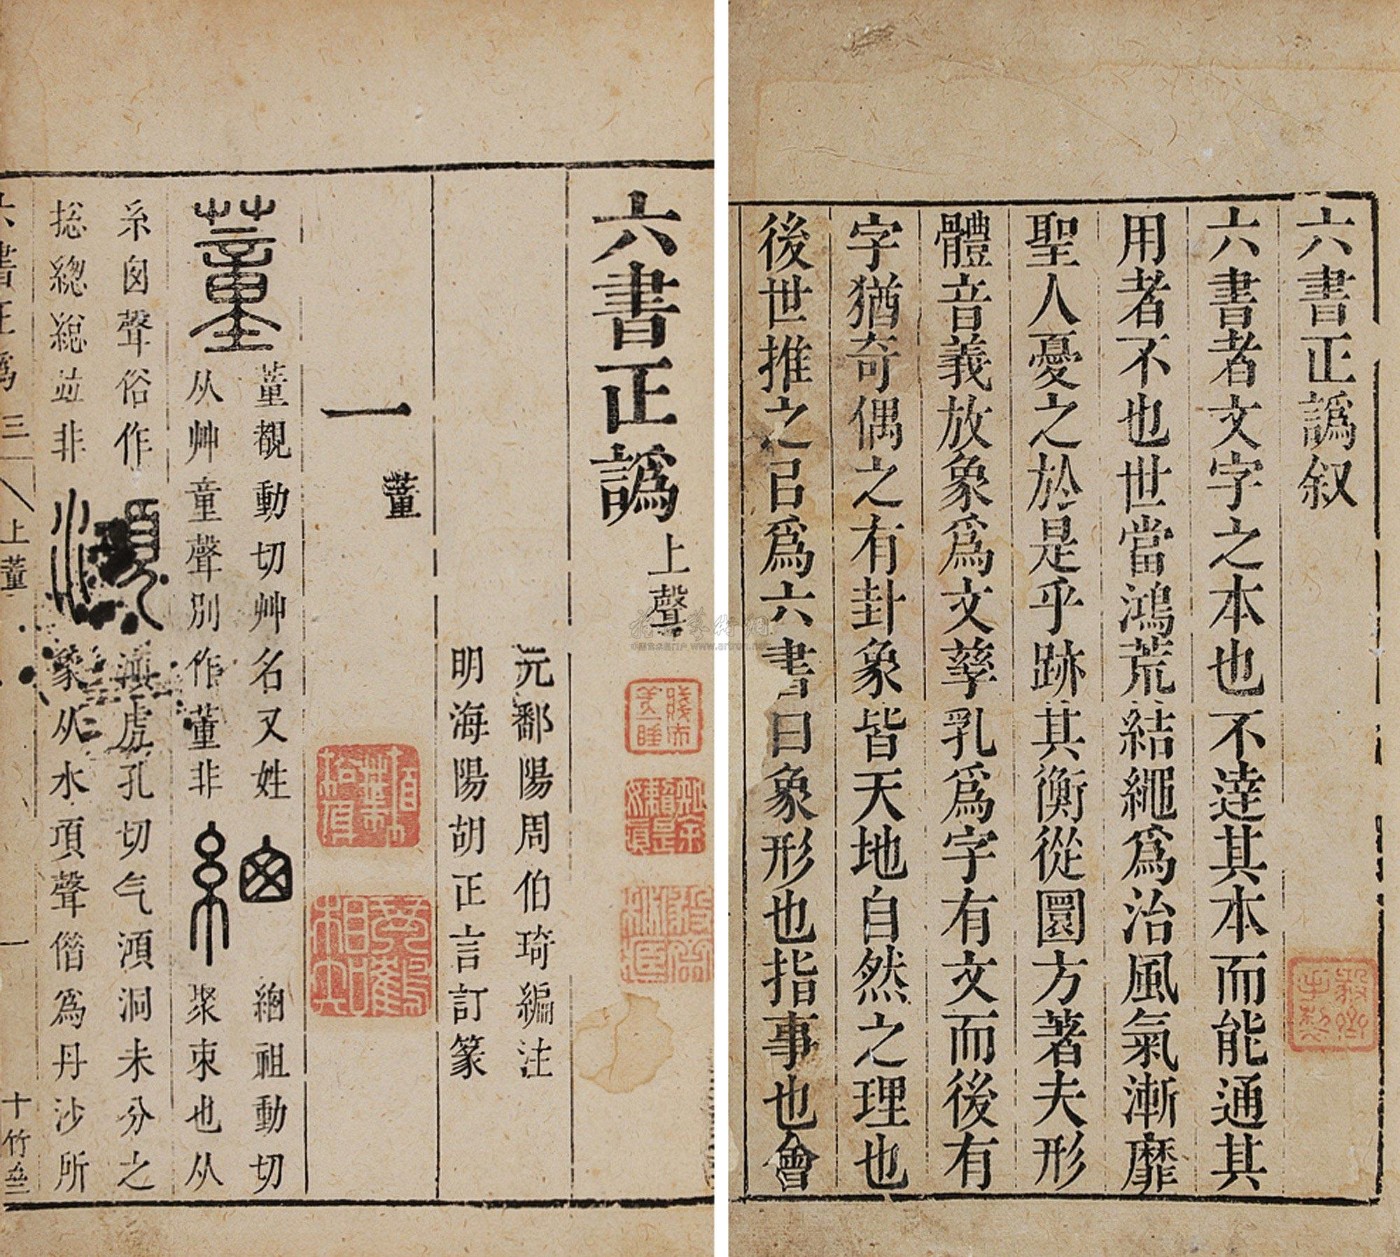 六書正譌叙
六書者文字之本也不逹其本而能通其
用者不也世當鴻荒結繩爲治風氣漸靡
聖人憂之於是乎跡其衡從圜方著夫形
體音義放象爲文孳乳爲字有文而後有
字猶奇偶之有卦象皆天地自然之理也
後世推之㠯爲六書曰象形也指事也會
六書正譌上聲
元鄱陽周伯琦編注
明海陽胡正言訂篆
一董
董
蕫覩動切艸名又姓
从艸童聲別作董非
緫祖動切
聚束也从
糸囱聲俗作
捴總緫竝非
澒
虎孔切气澒洞未分之
象从水項聲借爲丹沙所
六書正譌三
上董
一
十竹齋